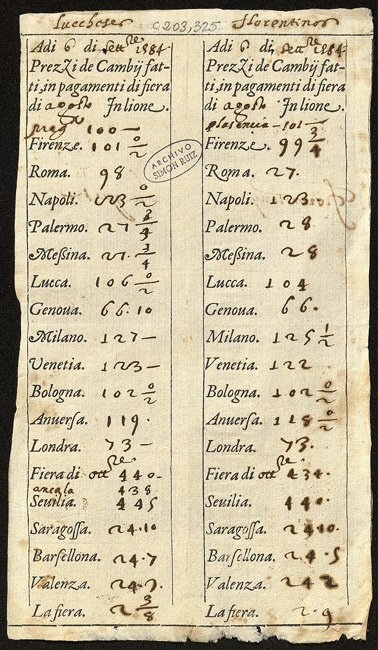 Luccheses
Adi 6 di Settre 1584
Prezzi de Cambij fat-
ti, in pagamenti di fiera
di agosto In lione.
100 —
Firenze. 101 0/2
Roma. 98
Napoli. 123 0/2
Palermo. 27 3/4
Meßina. 27. 3/4
Lucca. 106 0/2
Genoua. 66.10
Milano. 127 —
Venetia. 123 —
Bologna. 102 0/2
Anuerſa. 119.
Londra. 73 —
Fiera di ottre 440.
ancala 438
Seuilia. 445
Saragoſſa. 24.10
Barſellona. 24.7
Valenza. 24.
La fiera. 2 3/8
C 203,325
ARCHIVO
SIMON RUIZ
Florentinos
Adi 6 di Settre 1584
Prezzi de Cambij fat-
ti, in pagamenti di fiera
di agosto In lione.
plasencia - 101 —
Firenze. 99 3/4
Roma. 27.
Napoli. 123.
Palermo. 28
Meßina. 28
Lucca. 104
Genoua. 66.
Milano. 125 1/2
Venetia. 122
Bologna. 102 0/2
Anuerſa. 118 0/2
Londra. 73.
Fiera di ottre 434.
Seuilia. 440.
Saragoſſa. 24.10.
Barſellona. 24.5
Valenza. 242
La fiera. 2.9